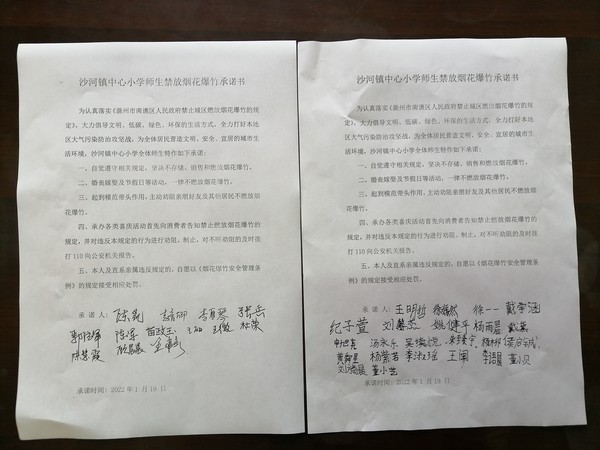 沙河镇中心小学师生禁放烟花爆竹承诺书
为认真落实《滁州市南谯区人民政府禁止城区燃放烟花爆竹的规
定》，大力倡导文明、低碳、绿色、环保的生活方式，全力打好本地
区大气污染防治攻坚战，为全体居民营造文明、安全、宜居的城市生
活环境，沙河镇中心小学全体师生特作如下承诺：
一、自觉遵守相关规定，坚决不存储、销售和燃放烟花爆竹。
二、婚丧嫁娶及节假日等活动，一律不燃放烟花爆竹。
三、起到模范带头作用，主动劝阻亲朋好友及其他居民不燃放烟
花爆竹。
四、承办各类喜庆活动首先向消费者告知禁止燃放烟花爆竹的
规定，并对违反本规定的行为进行劝阻、制止，对不听劝阻的及时拨
打 110 向公安机关报告。
五、本人及直系亲属违反规定的，自愿以《烟花爆竹安全管理条
例》的规定接受相应处罚。
承 诺 人：
陈慧霞
承诺时间：2022 年 1 月 19 日
沙河镇中心小学师生禁放烟花爆竹承诺书
为认真落实《滁州市南谯区人民政府禁止城区燃放烟花爆竹的规
定》，大力倡导文明、低碳、绿色、环保的生活方式，全力打好本地
区大气污染防治攻坚战，为全体居民营造文明、安全、宜居的城市生
活环境，沙河镇中心小学全体师生特作如下承诺：
一、自觉遵守相关规定，坚决不存储、销售和燃放烟花爆竹。
二、婚丧嫁娶及节假日等活动，一律不燃放烟花爆竹。
三、起到模范带头作用，主动劝阻亲朋好友及其他居民不燃放烟
花爆竹。
四、承办各类喜庆活动首先向消费者告知禁止燃放烟花爆竹的
规定，并对违反本规定的行为进行劝阻、制止，对不听劝阻的及时拨
打 110 向公安机关报告。
五、本人及直系亲属违反规定的，自愿以《烟花爆竹安全管理条
例》的规定接受相应处罚。
承 诺 人： 王明哲 徐一一 戴宇涵
纪子萱 姚健平 杨雨晨
汤永乐
杨紫若 李淑瑶 王闸
董小芝
承诺时间：2022 年 1 月 19 日